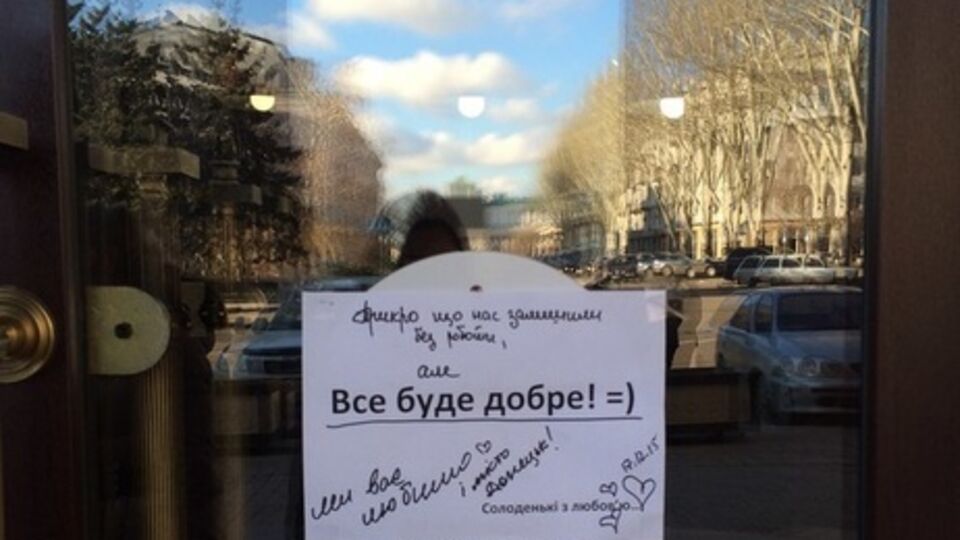 Прикро що нас залишили
без роботи,
але
Все буде добре! =)
ми вас
любимо
і місто
Донецьк!
17.12.15
Солоденькі з любов'ю...